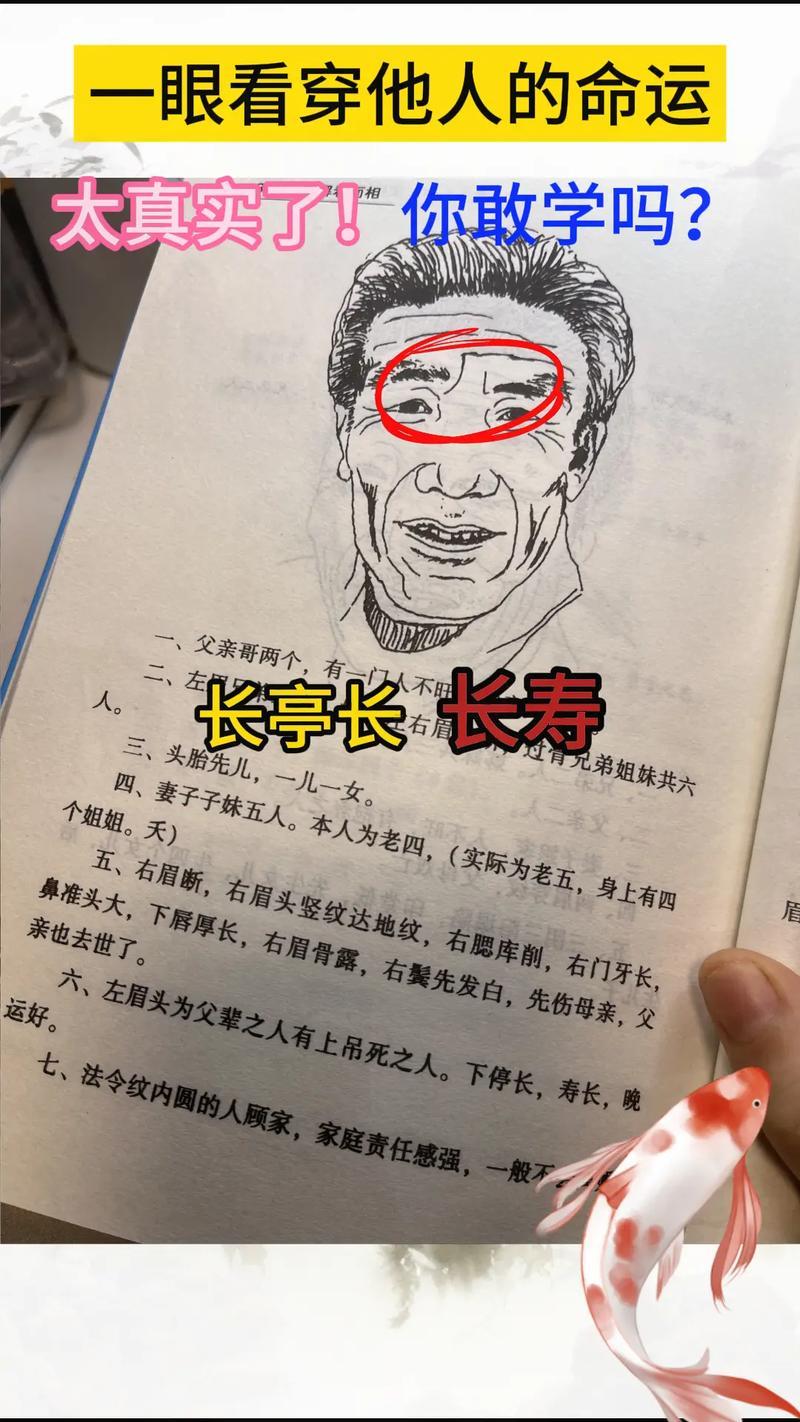 一眼看穿他人的命运
太真实了！ 你敢学吗？
相
一、父亲哥两个，有一门人不旺
二、左眉
右眉
过有兄弟姐妹共六
人。
长亭长 长寿
三、头胎先儿，一儿一女。
四、妻子子妹五人。本人为老四，(实际为老五，身上有四
个姐姐。夭)
五、右眉断，右眉头竖纹达地纹，右腮库削，右门牙长，
鼻准头大，下唇厚长，右眉骨露，右鬓先发白，先伤母亲，父
亲也去世了。
六、左眉头为父辈之人有上吊死之人。下停长，寿长，晚
运好。
七、法令纹内圆的人顾家，家庭责任感强，一般不
眉